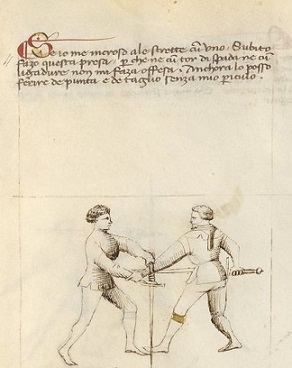 Se io me incroso a le strette cū uno. Subito
fazo questa presa, p che ne cū tor di spada ne cū
ligadure non mi faza offesa. Anchora lo posso
ferire de punta e de taglio senza mio p iculo.